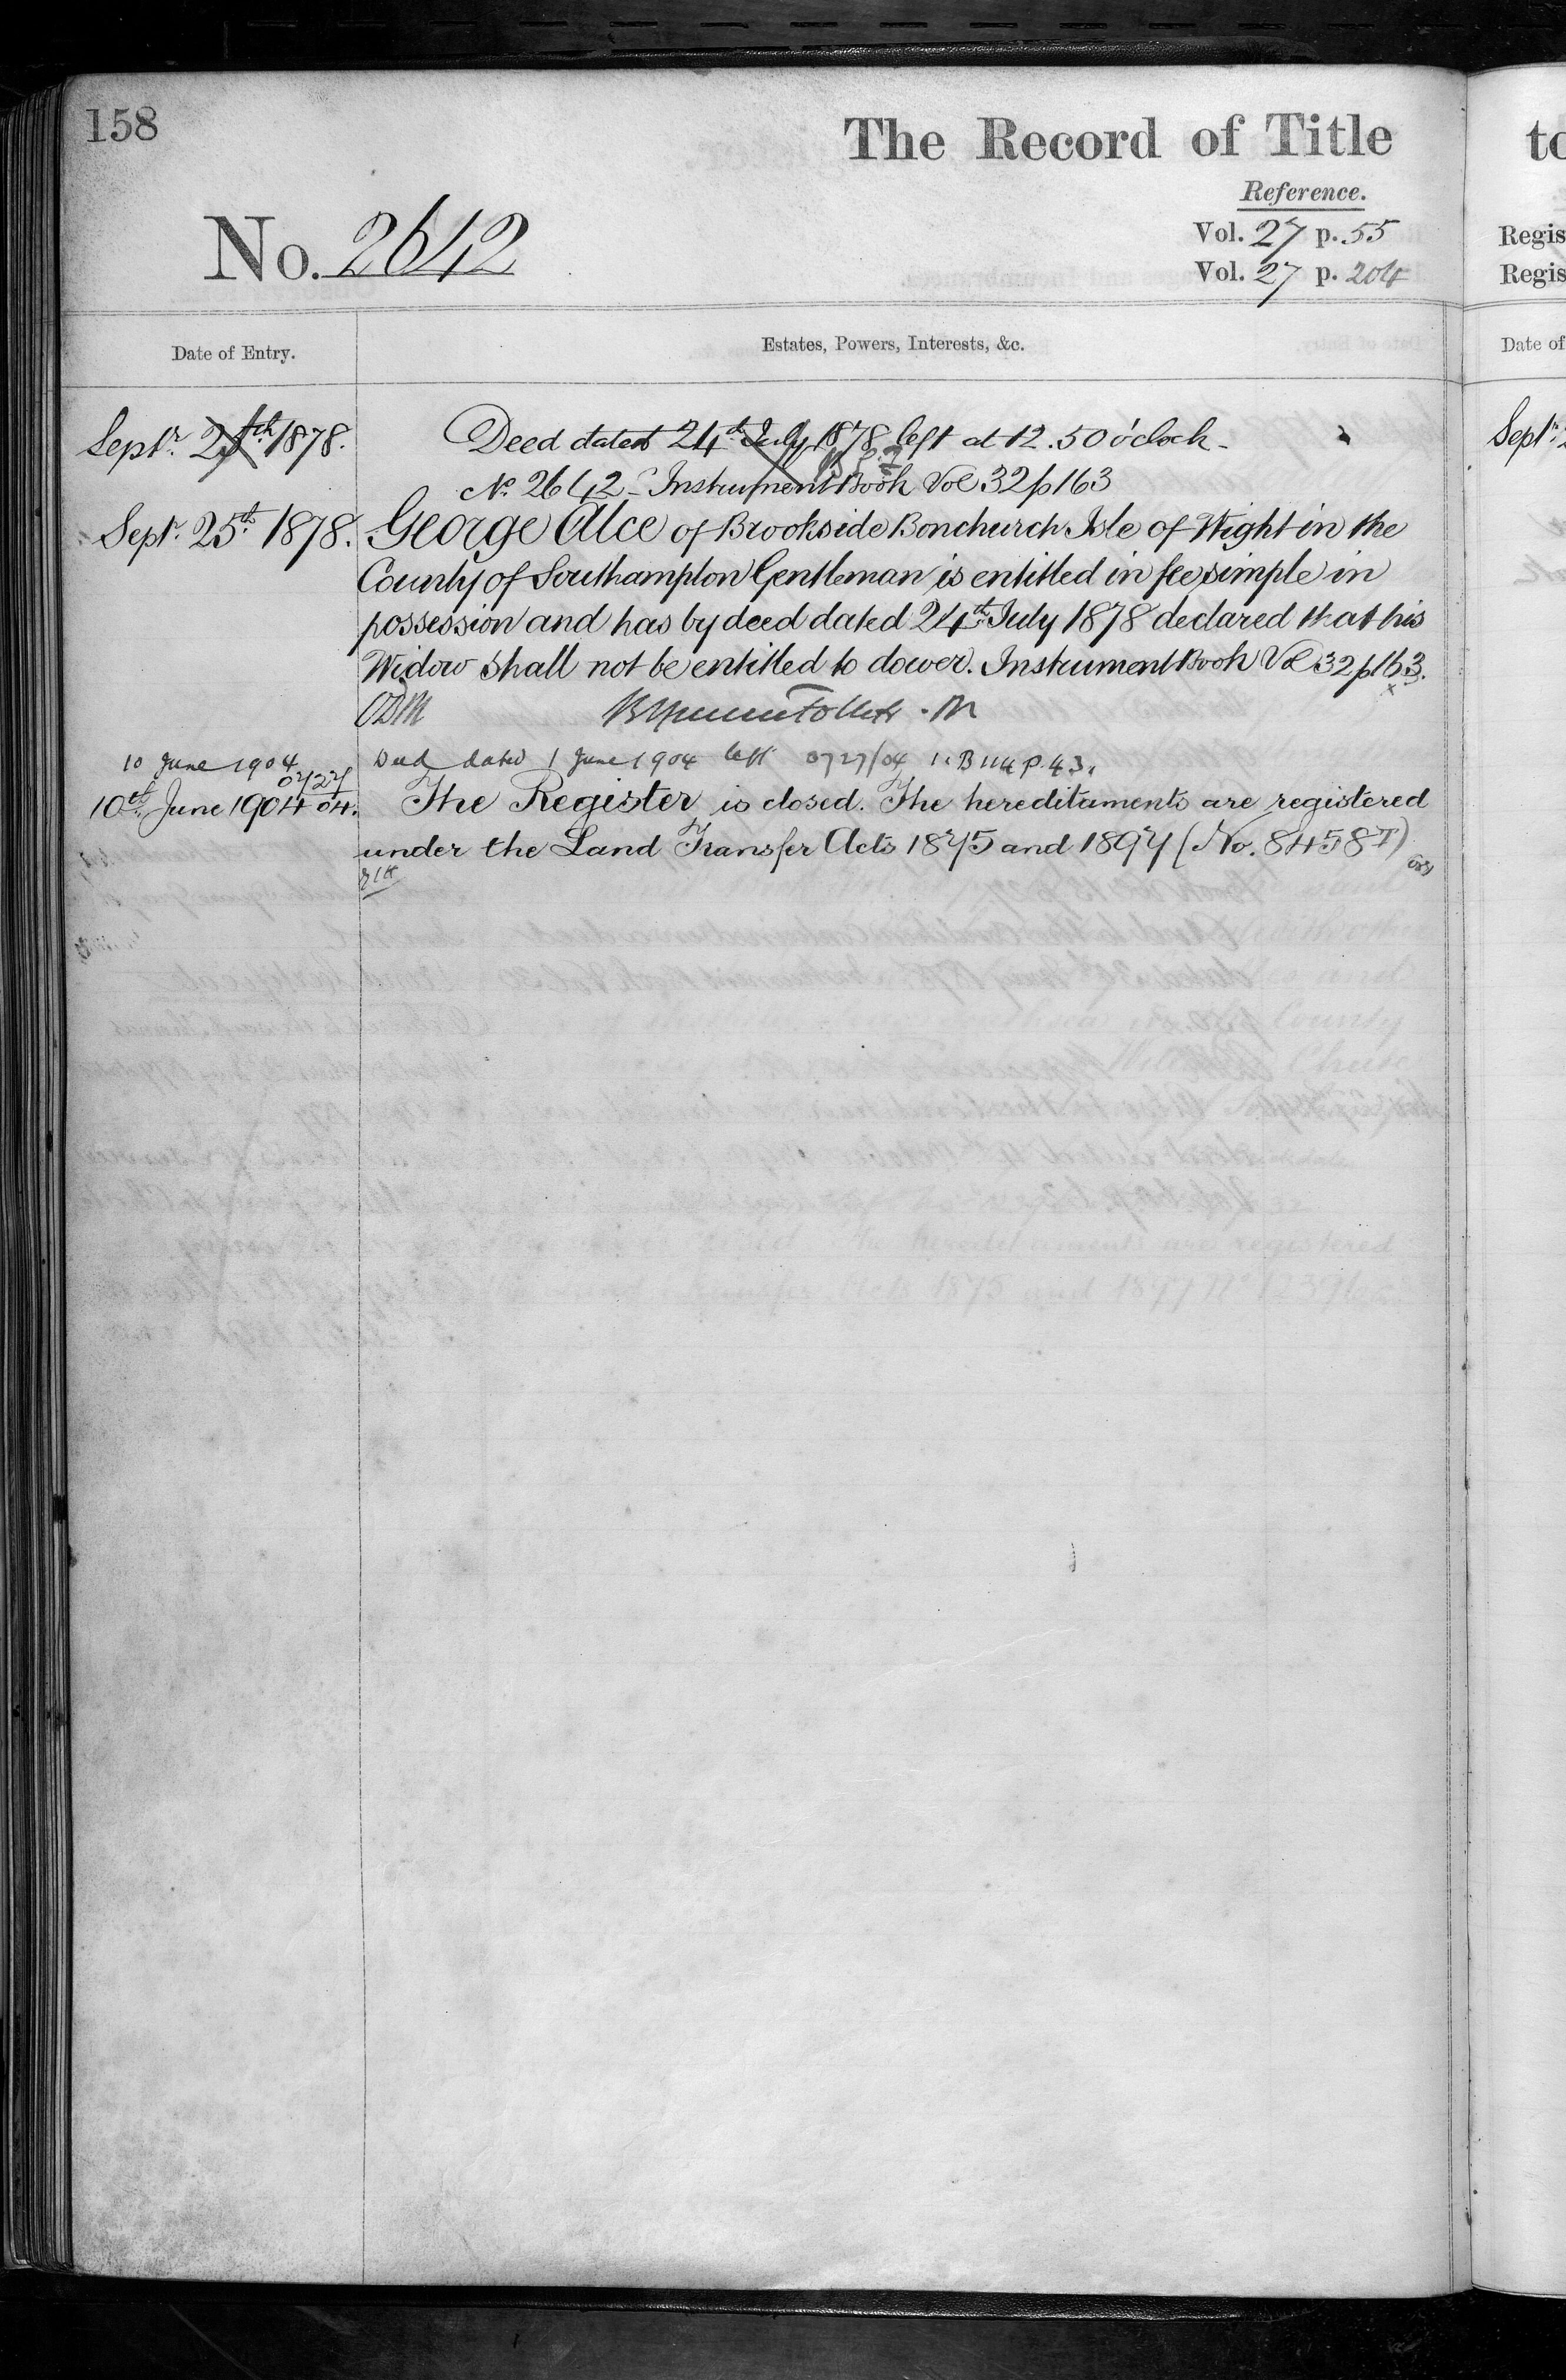 158
The Record of Title
Reference.
No. 2642
Vol. 27 p. 55
Vol. 27 p. 204
Date of Entry.
Estates, Powers, Interests, &c.
Septr. 25th 1878.
Deed dated 24th July 1878 left at 12.50 o'clock -
No. 2642 - Instrument Book Vol 32 p 163
Septr. 25th 1878.
George Alce of Brookside Bonchurch Isle of Wight in the
County of Southampton Gentleman is entitled in fee simple in
possession and has by deed dated 24th July 1878 declared that his
Widow shall not be entitled to dower. Instrument Book Vol 32 p 163.
10 June 1904
Deed dated 1 June 1904 left 0727/04 I.B 114 p. 43.
0727
10th June 1904 04.
The Register is closed. The hereditaments are registered
under the Land Transfer Acts 1875 and 1897 (No. 84587)
to
Regis
Regis
Date of
Septr.